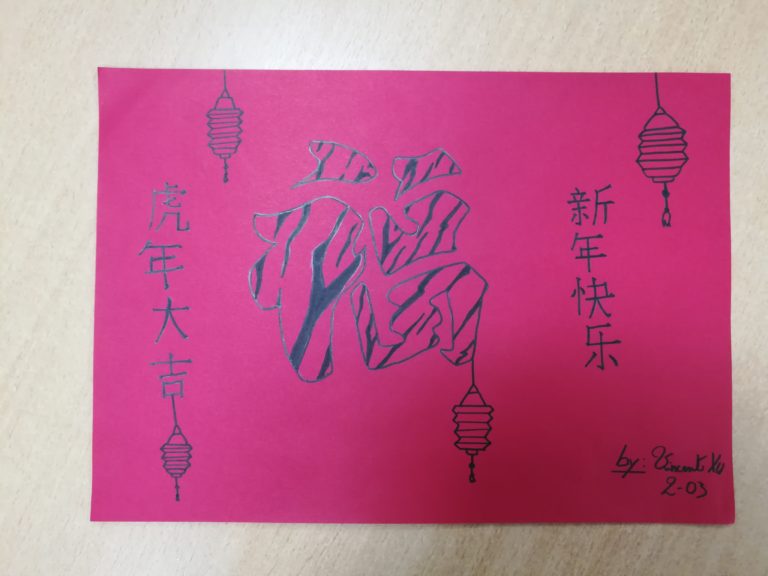 新年快乐
福
虎年大吉
by: Vincent Xu
2-03